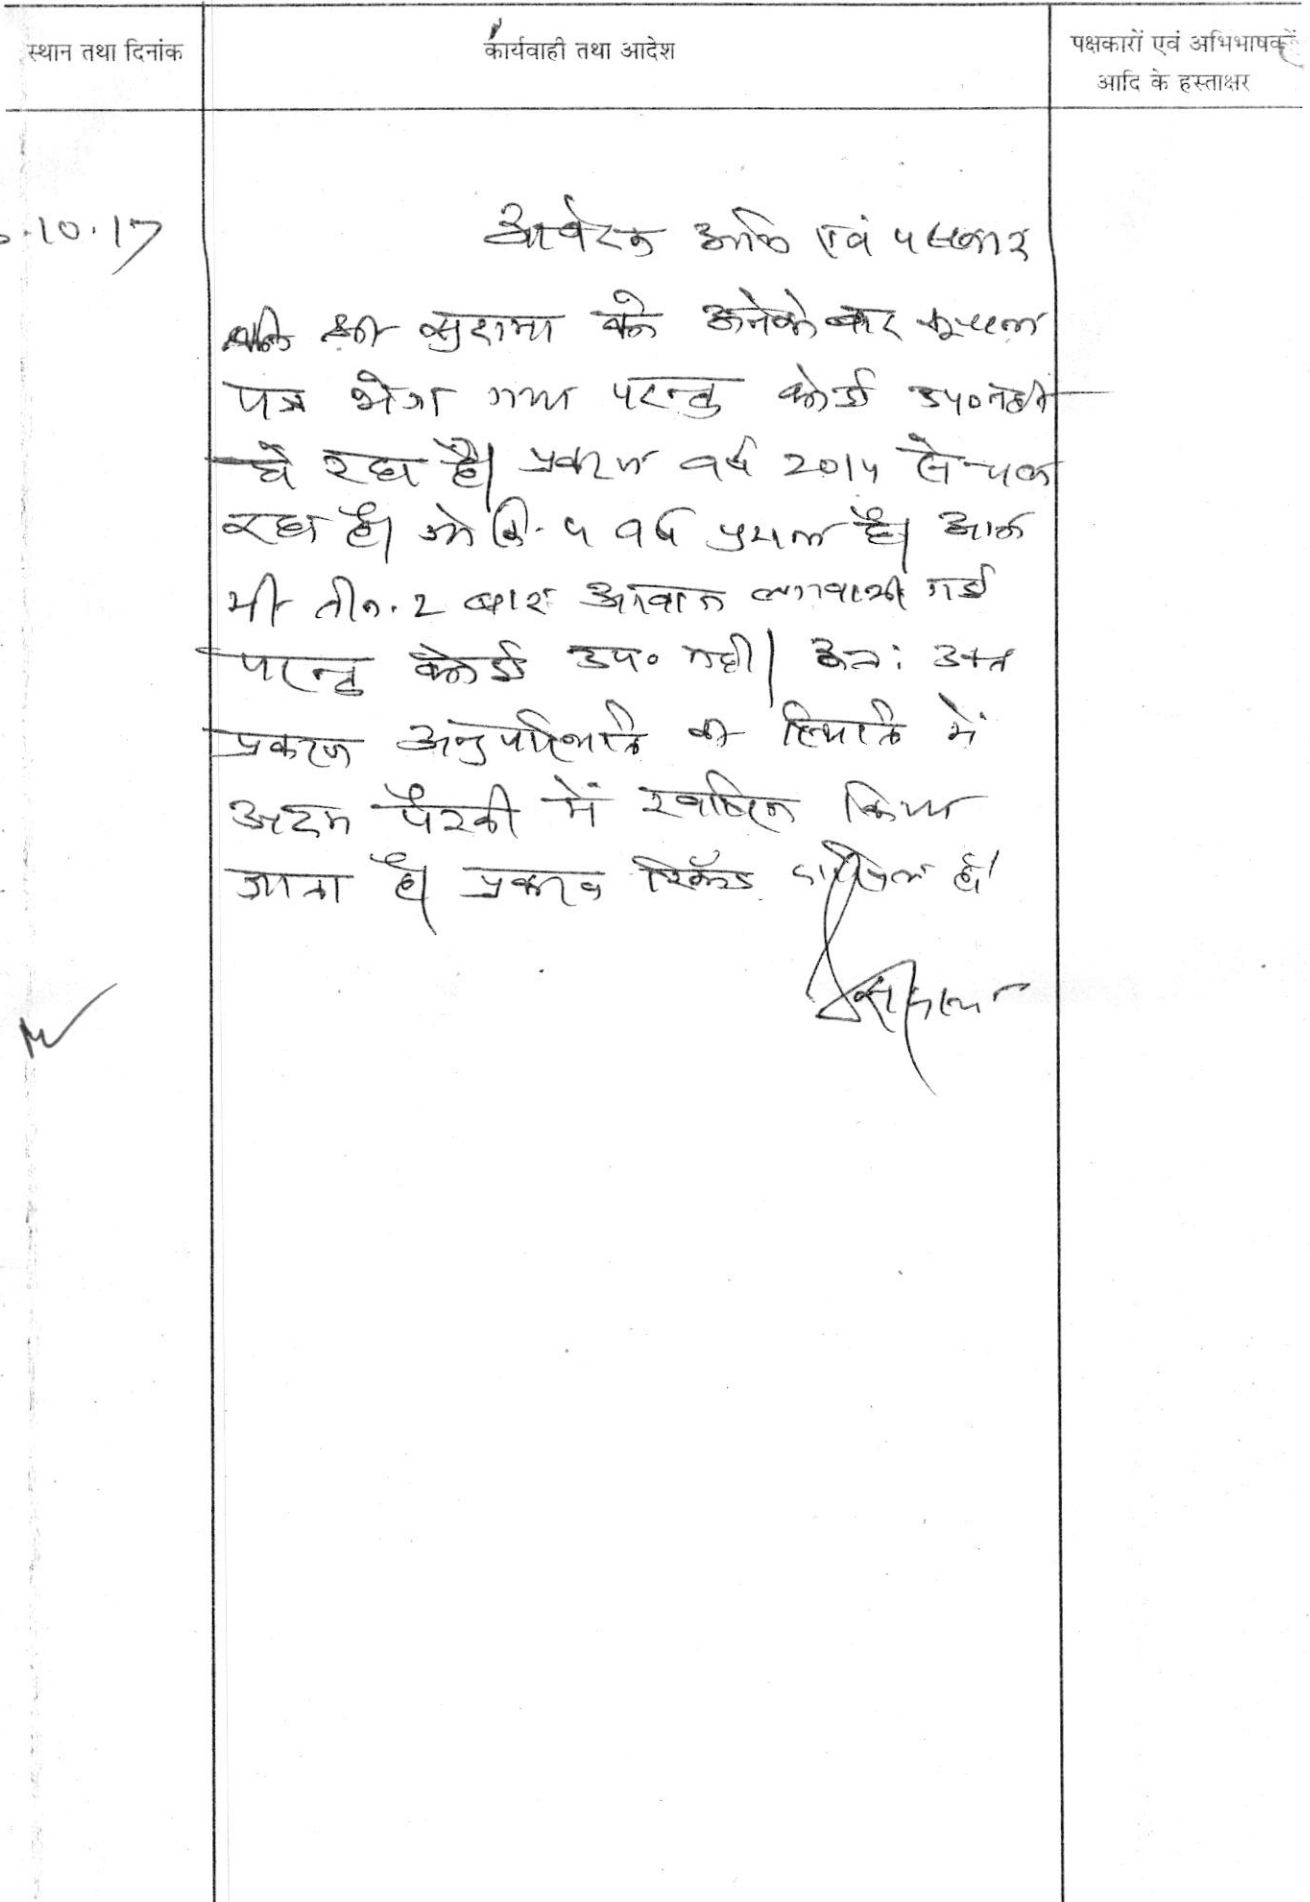 स्थान तथा दिनांक
कार्यवाही तथा आदेश
पक्षकारों एवं अभिभाषकों
आदि के हस्ताक्षर
.10.17
आवेदक एवं पक्षकार
श्री सुदामा को अनेको बार सूचना
पत्र भेजा गया परन्तु कोई उप० नही
हो रहा है। प्रकरण वर्ष 2014 से चल
रहा है। जो कि वर्ष पुराना है। आज
भी तीन. 2 बार आवाज लगवायी गई
परन्तु कोई उप० नही। अतः उक्त
प्रकरण अनुपस्थिति की स्थिति में
अदम पैरवी में खारिज किया
जाता है। प्रकरण रिकॅार्ड दाखिल हो।